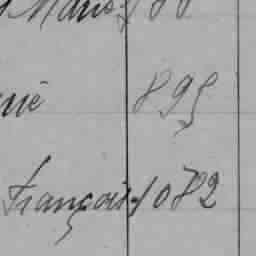 Marie 188
rié 895
François 1082